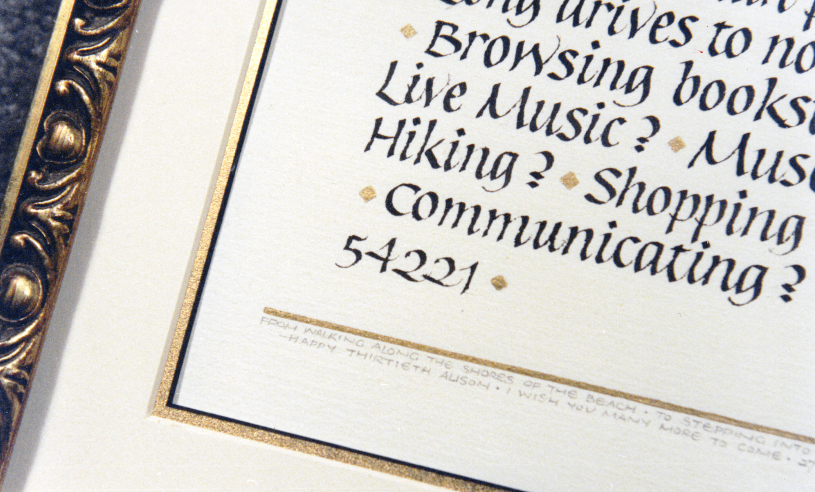 Long drives to no
Browsing bookst
Live Music? Muse
Hiking? Shopping
Communicating?
54221
FROM WALKING ALONG THE SHORES OF THE BEACH • TO STEPPING INTO
—HAPPY THIRTIETH ALISON • I WISH YOU MANY MORE TO COME • 27